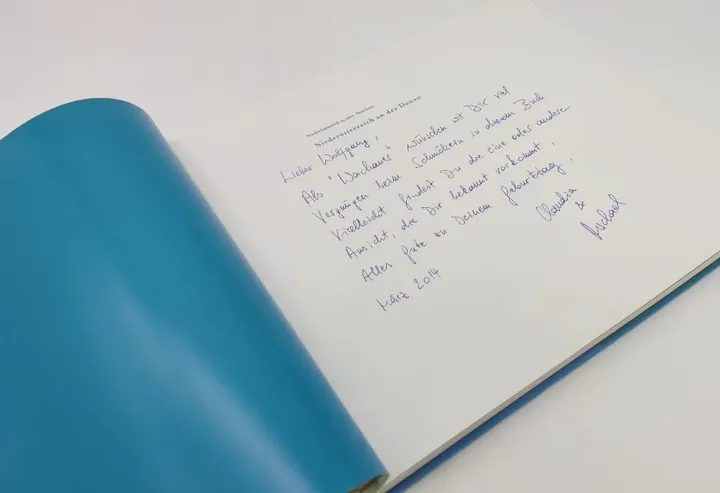 Niederösterreich in alten Ansichten
Niederösterreich an der Donau
Lieber Wolfgang,
Als "Wachauer" wünschen wir Dir viel
Vergnügen beim Schmökern in diesem Buch.
Vielleicht findest Du die eine oder andere
Ansicht, die Dir bekannt vorkommt.
Alles Gute zu Deinem Geburtstag,
Claudia
&
Michael
März 2014